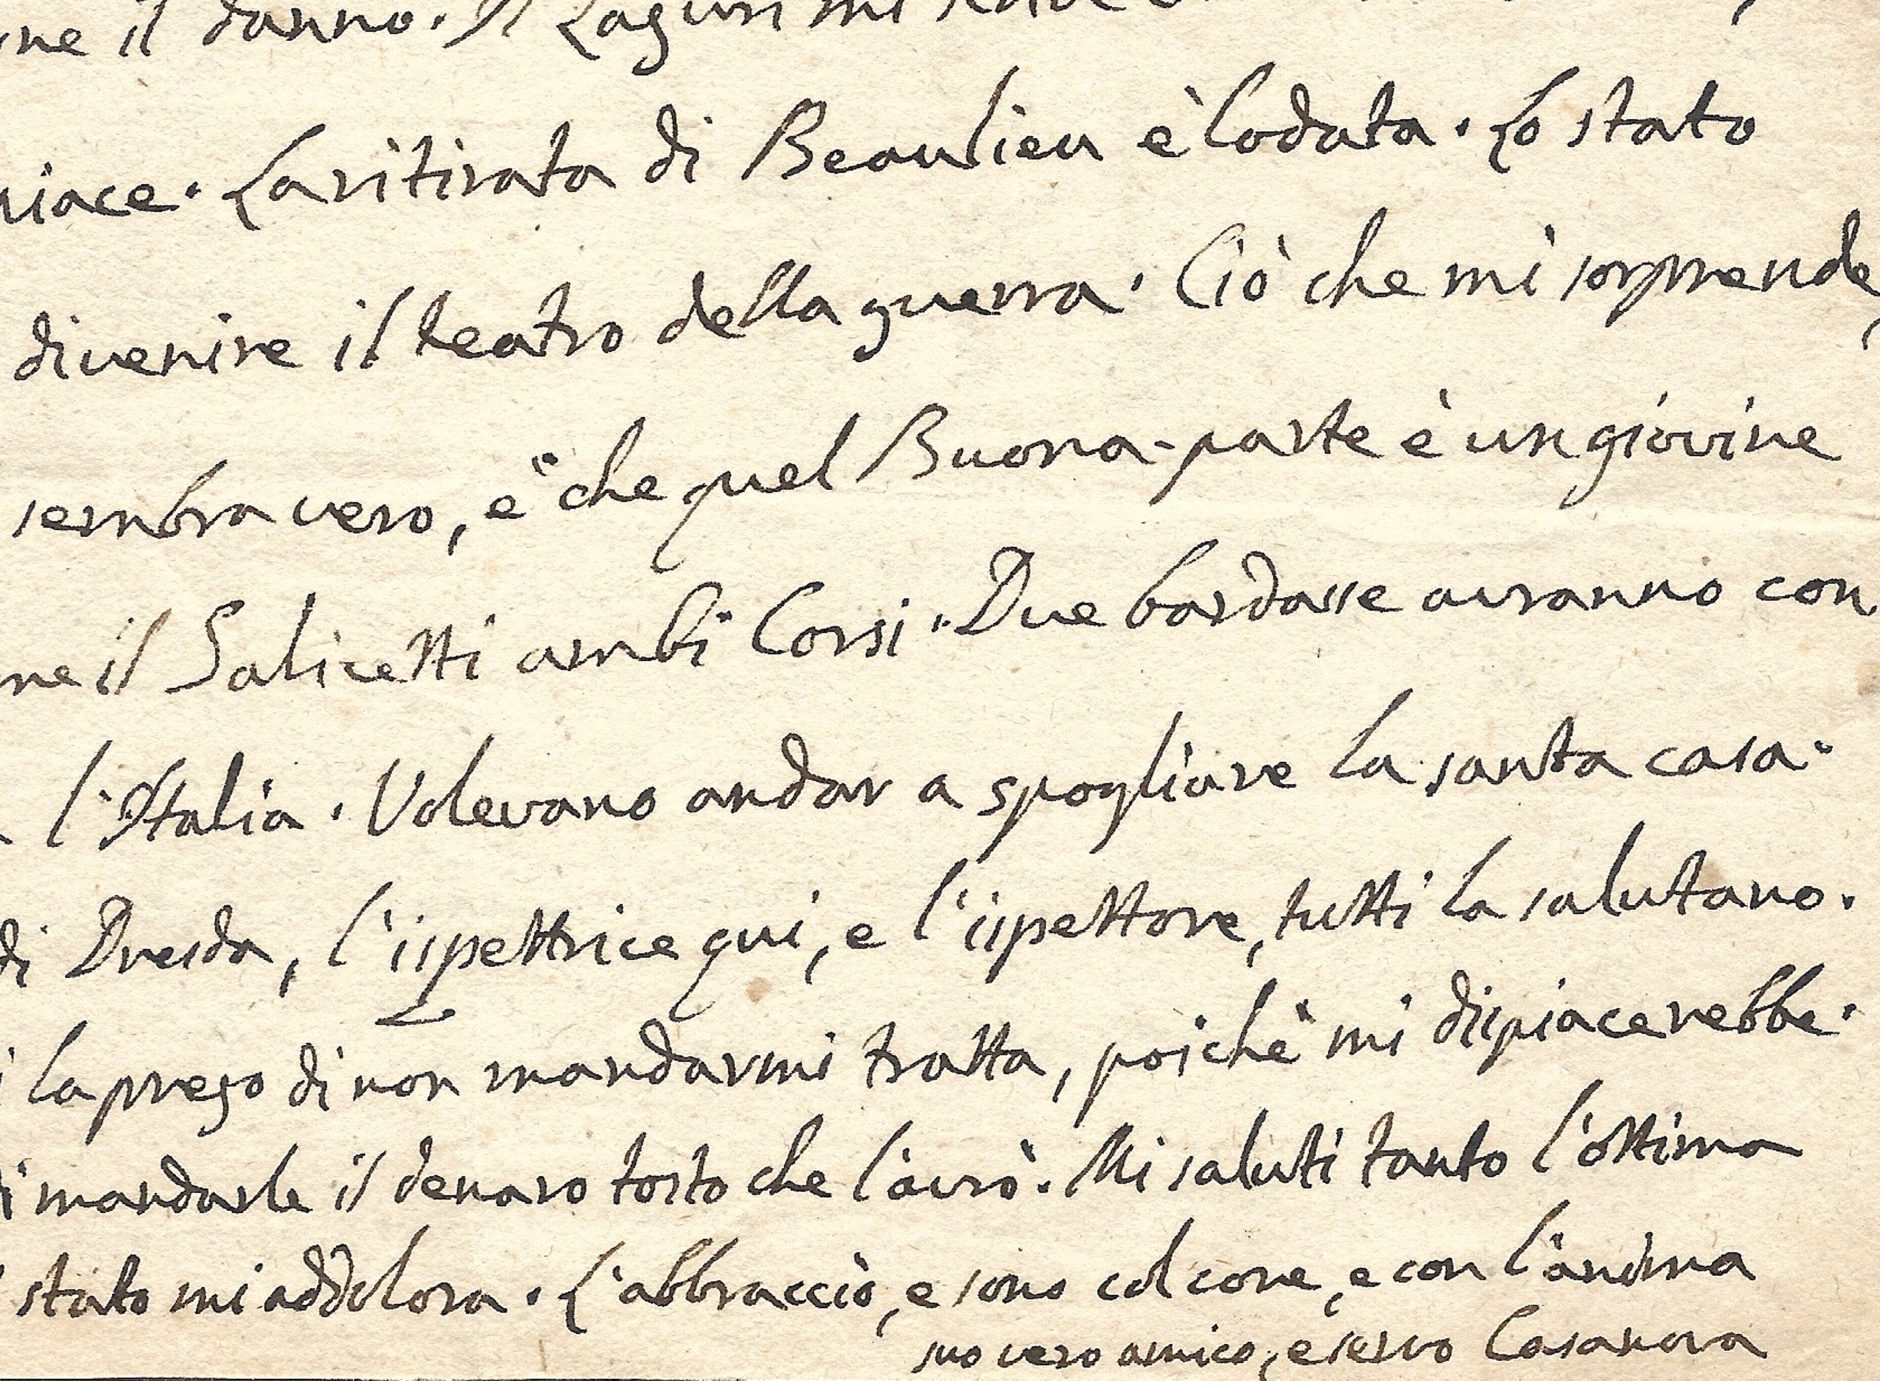 il danno. Il Zaguri mi
. La ritirata di Beaulieu è lodata. Lo stato
divenire il teatro della guerra. Ciò che mi sorprende,
sembra vero, è che quel Buona-parte è un giovine
il Salicetti ambi Corsi. Due bardasse avranno con
l'Italia. Volevano andar a spogliare la santa casa.
di Dresda, l'ispettrice qui, e l'ispettore, tutti la salutano.
la prego di non mandarmi tratta, poichè mi dispiacerebbe.
mandarle il denaro tosto che l'avrò. Mi saluti tanto l'ottima
stato mi addolora. L'abbraccio, e sono col core, e con l'anima
suo vero amico, e servo Casanova